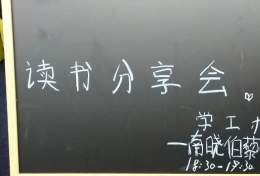 读书分享会。
学工
一南晓伯藜
18:30-19:30